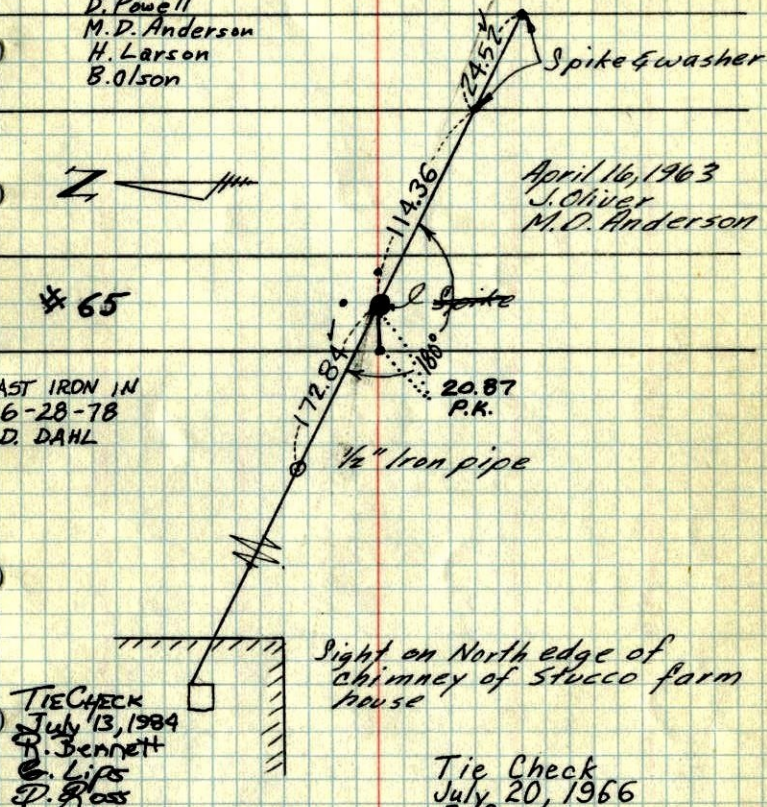 D. Powell
M.D. Anderson
H. Larson
B. Olson
24.52
Spike & washer
114.36
Z
April 16, 1963
J. Oliver
M.D. Anderson
# 65
Spike
172.84
180°
20.87
P.K.
AST IRON IN
6-28-78
D. DAHL
1/2" Iron pipe
Sight on North edge of
chimney of Stucco farm
house
TIE CHECK
July 13, 1984
R. Bennett
G. Lips
D. Ross
Tie Check
July 20, 1966